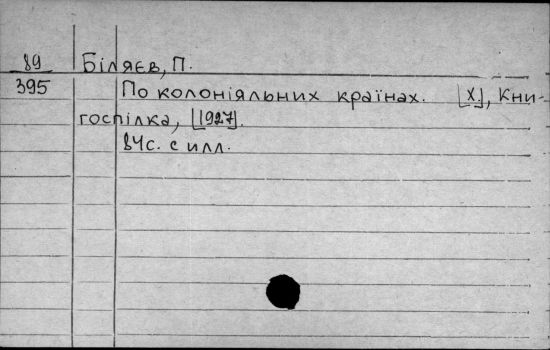 89 Біляєв, П.
395 По колоніяльних країнах. [X], Кни-
госпілка, [1927].
84с. с илл.